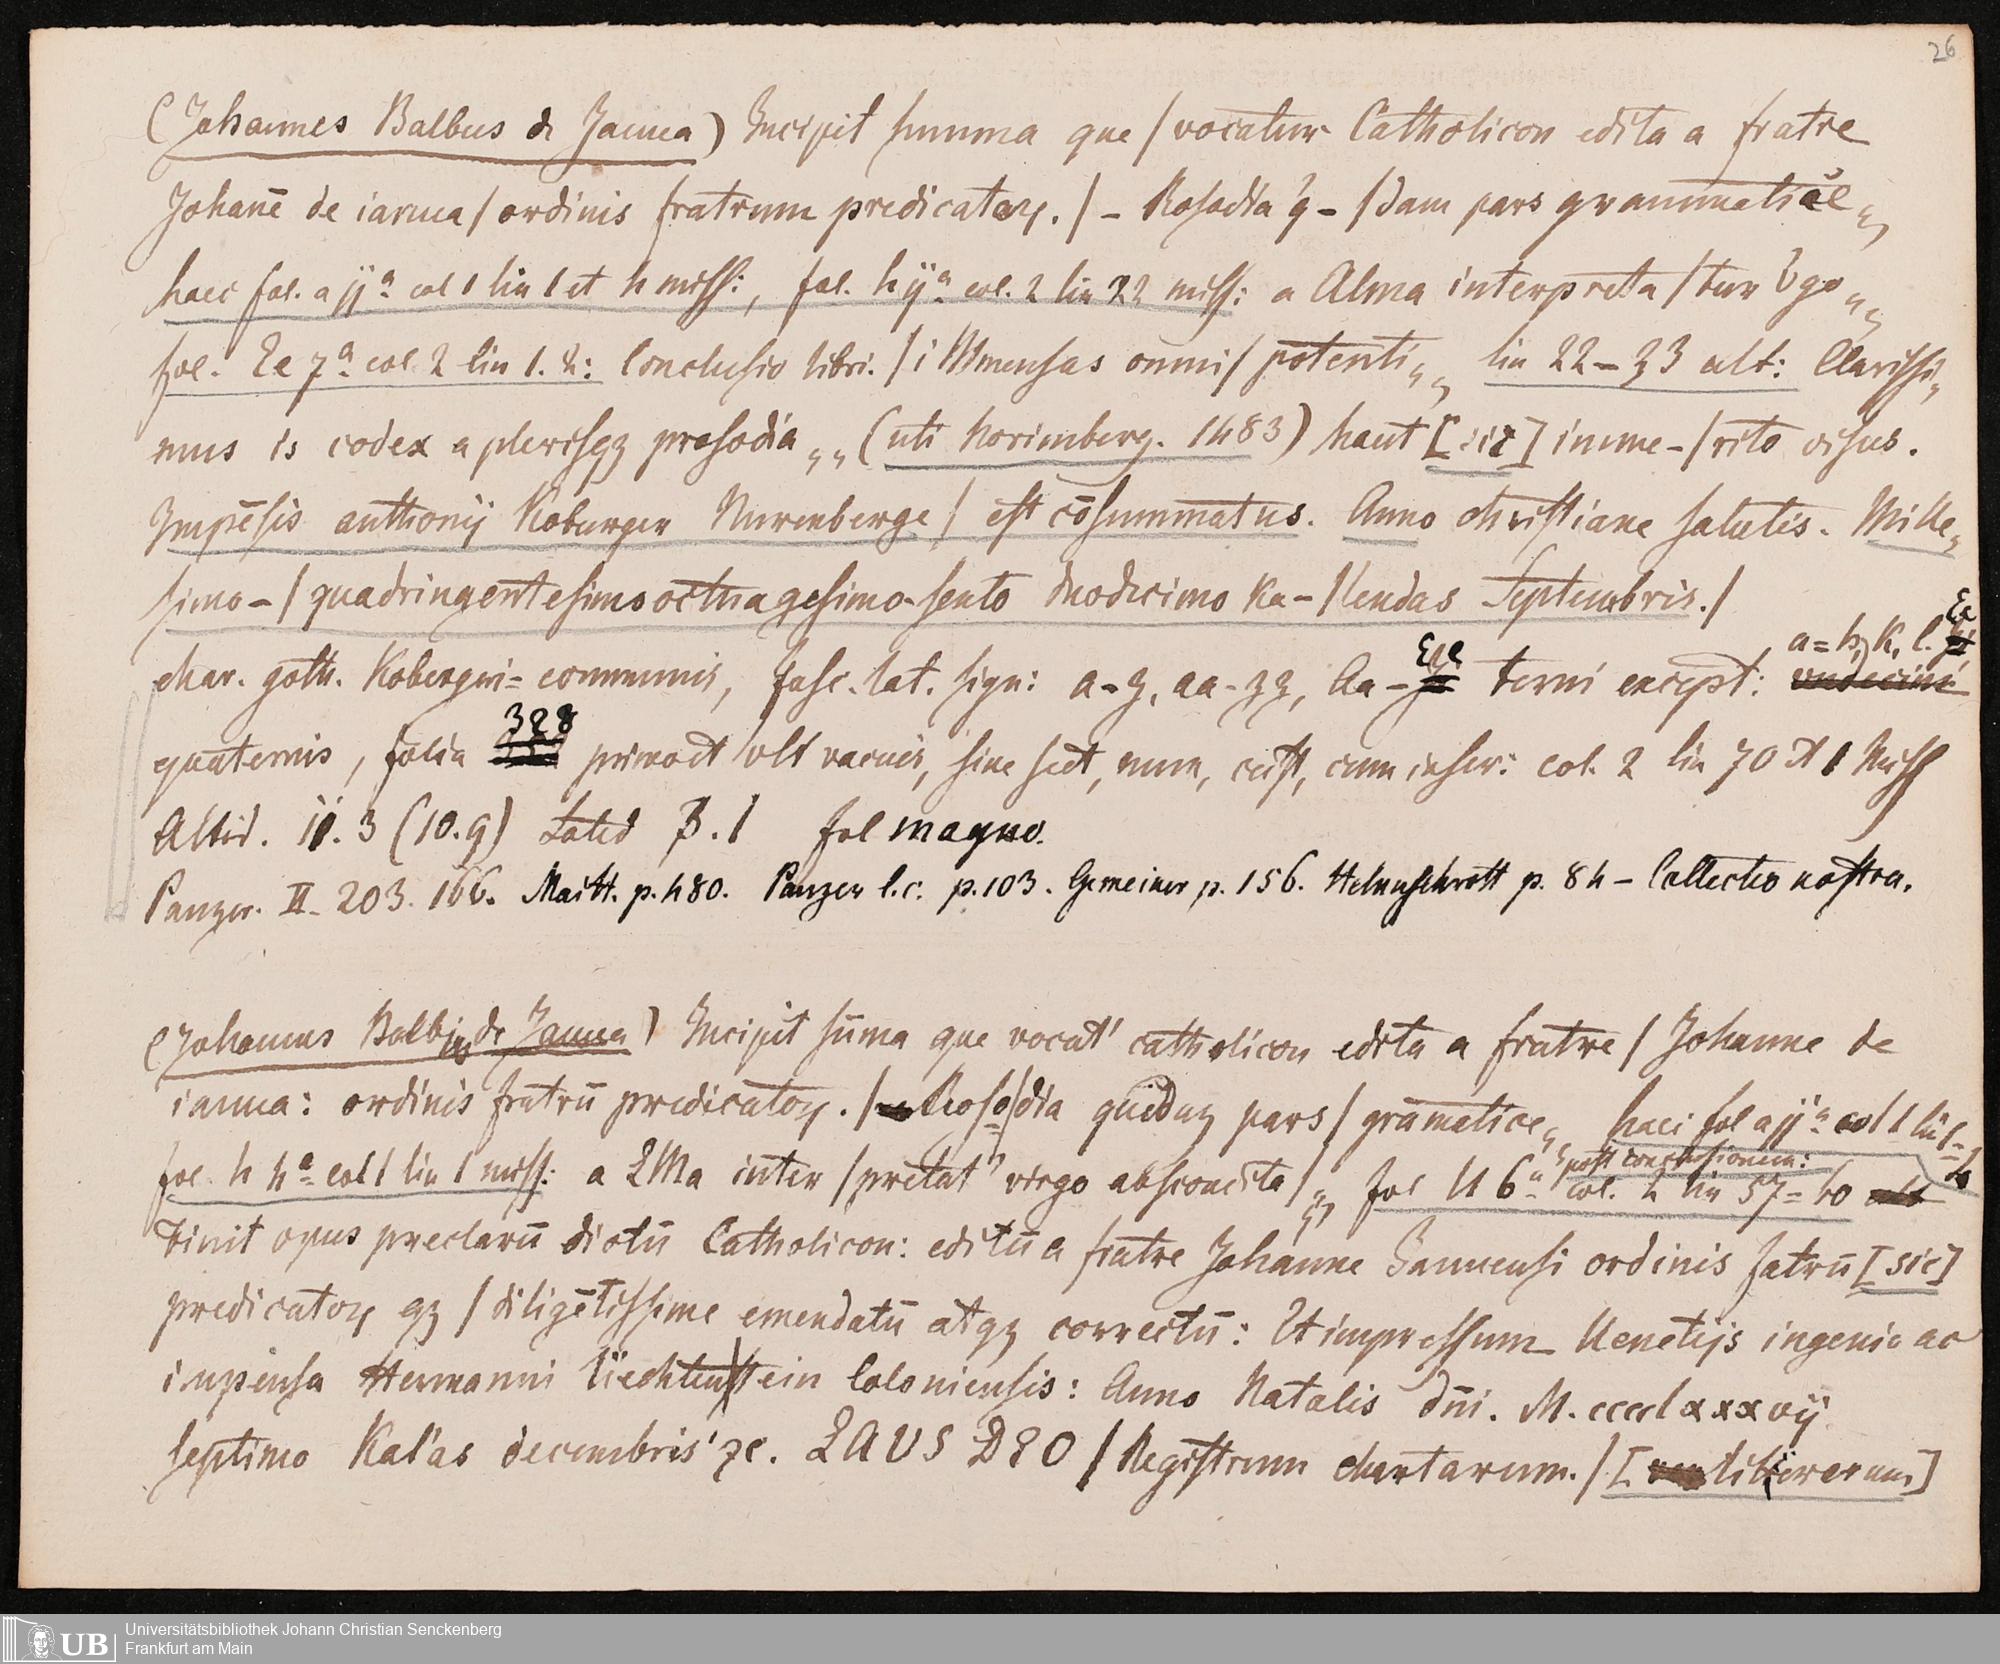 26
(Johannes Balbus de Janua) Incipit summa que / vocatur Catholicon edita a fratre
Johanē de ianua / ordinis fratrum predicatoꝝ. / – Rosodia q̇ – / dam pars grammatice „
haec fol. a ijª col 1 lin 1 et h miss:, fol. h ijª col. 2 lin 22 miss: a Alma interpreta / tur vgo „
fol. Ee 7ª col 2 lin 1. 2: Conclusio libri. / i Mmensas omni / potenti „ lin 22 – 33 ult: Clarissi„
mus is codex a plerisqꝫ prosodia „ (uti Norimberg. 1483) haut [sic] imme – / rito visus.
Impēsis anthonij Koburger Nurenberge / est cōsummatus. Anno christiane salutis. Mille„
simo – / quadringentesimo octuagesimo-sexto duodecimo Ka – / lendas Septembris. /
char. goth. Kobergeri- communis, fasc. lat. sign: a - z, aa - zz, Aa - Eee terni except: a = h, k, l. Ee
quaternis, folia 328 primo et vlt vacuis, sine sect, num, cust, cum inscr: col. 2 lin 70 et 1 Miss
Altid. II. 3 (10. 9) Lated 3. 1 fol magno.
Panzer. II. 203. 166. Maitt. p. 480. Panzer l. c. p. 103. Gemeiner p. 156. Helmschrott p. 84 – Collectio nostra.
(Johannes Balbus de Janua) Incipit sūma que vocat' catholicon edita a fratre / Johanne de
ianua: ordinis fratrū predicatoꝝ. / Roso/dia quedaꝫ pars / gramatice „ haec fol a ijª col 1 lin 1-4
fol. h hª col 1 lin 1 miss: a LMa inter / pretat' virgo abscondita / „ fol U 6ª post conclusionem: col. 2 lin 37 = 40
tinit opus preclarū dictū Catholicon: editū a fratre Johanne Januensi ordinis fatrū [sic]
predicatoꝝ qꝫ / diligētissime emendatū atqꝫ correctū: Et impressum Uenetijs ingenio ac
impensa Hermanni Liechtenstein Coloniensis: Anno Natalis dn̄i. M. cccclxxxvij
septimo Kal'as decembris' ꝛc. LAUS DEO / Registrum chartarum. /
Universitätsbibliothek Johann Christian Senckenberg
Frankfurt am Main
UB